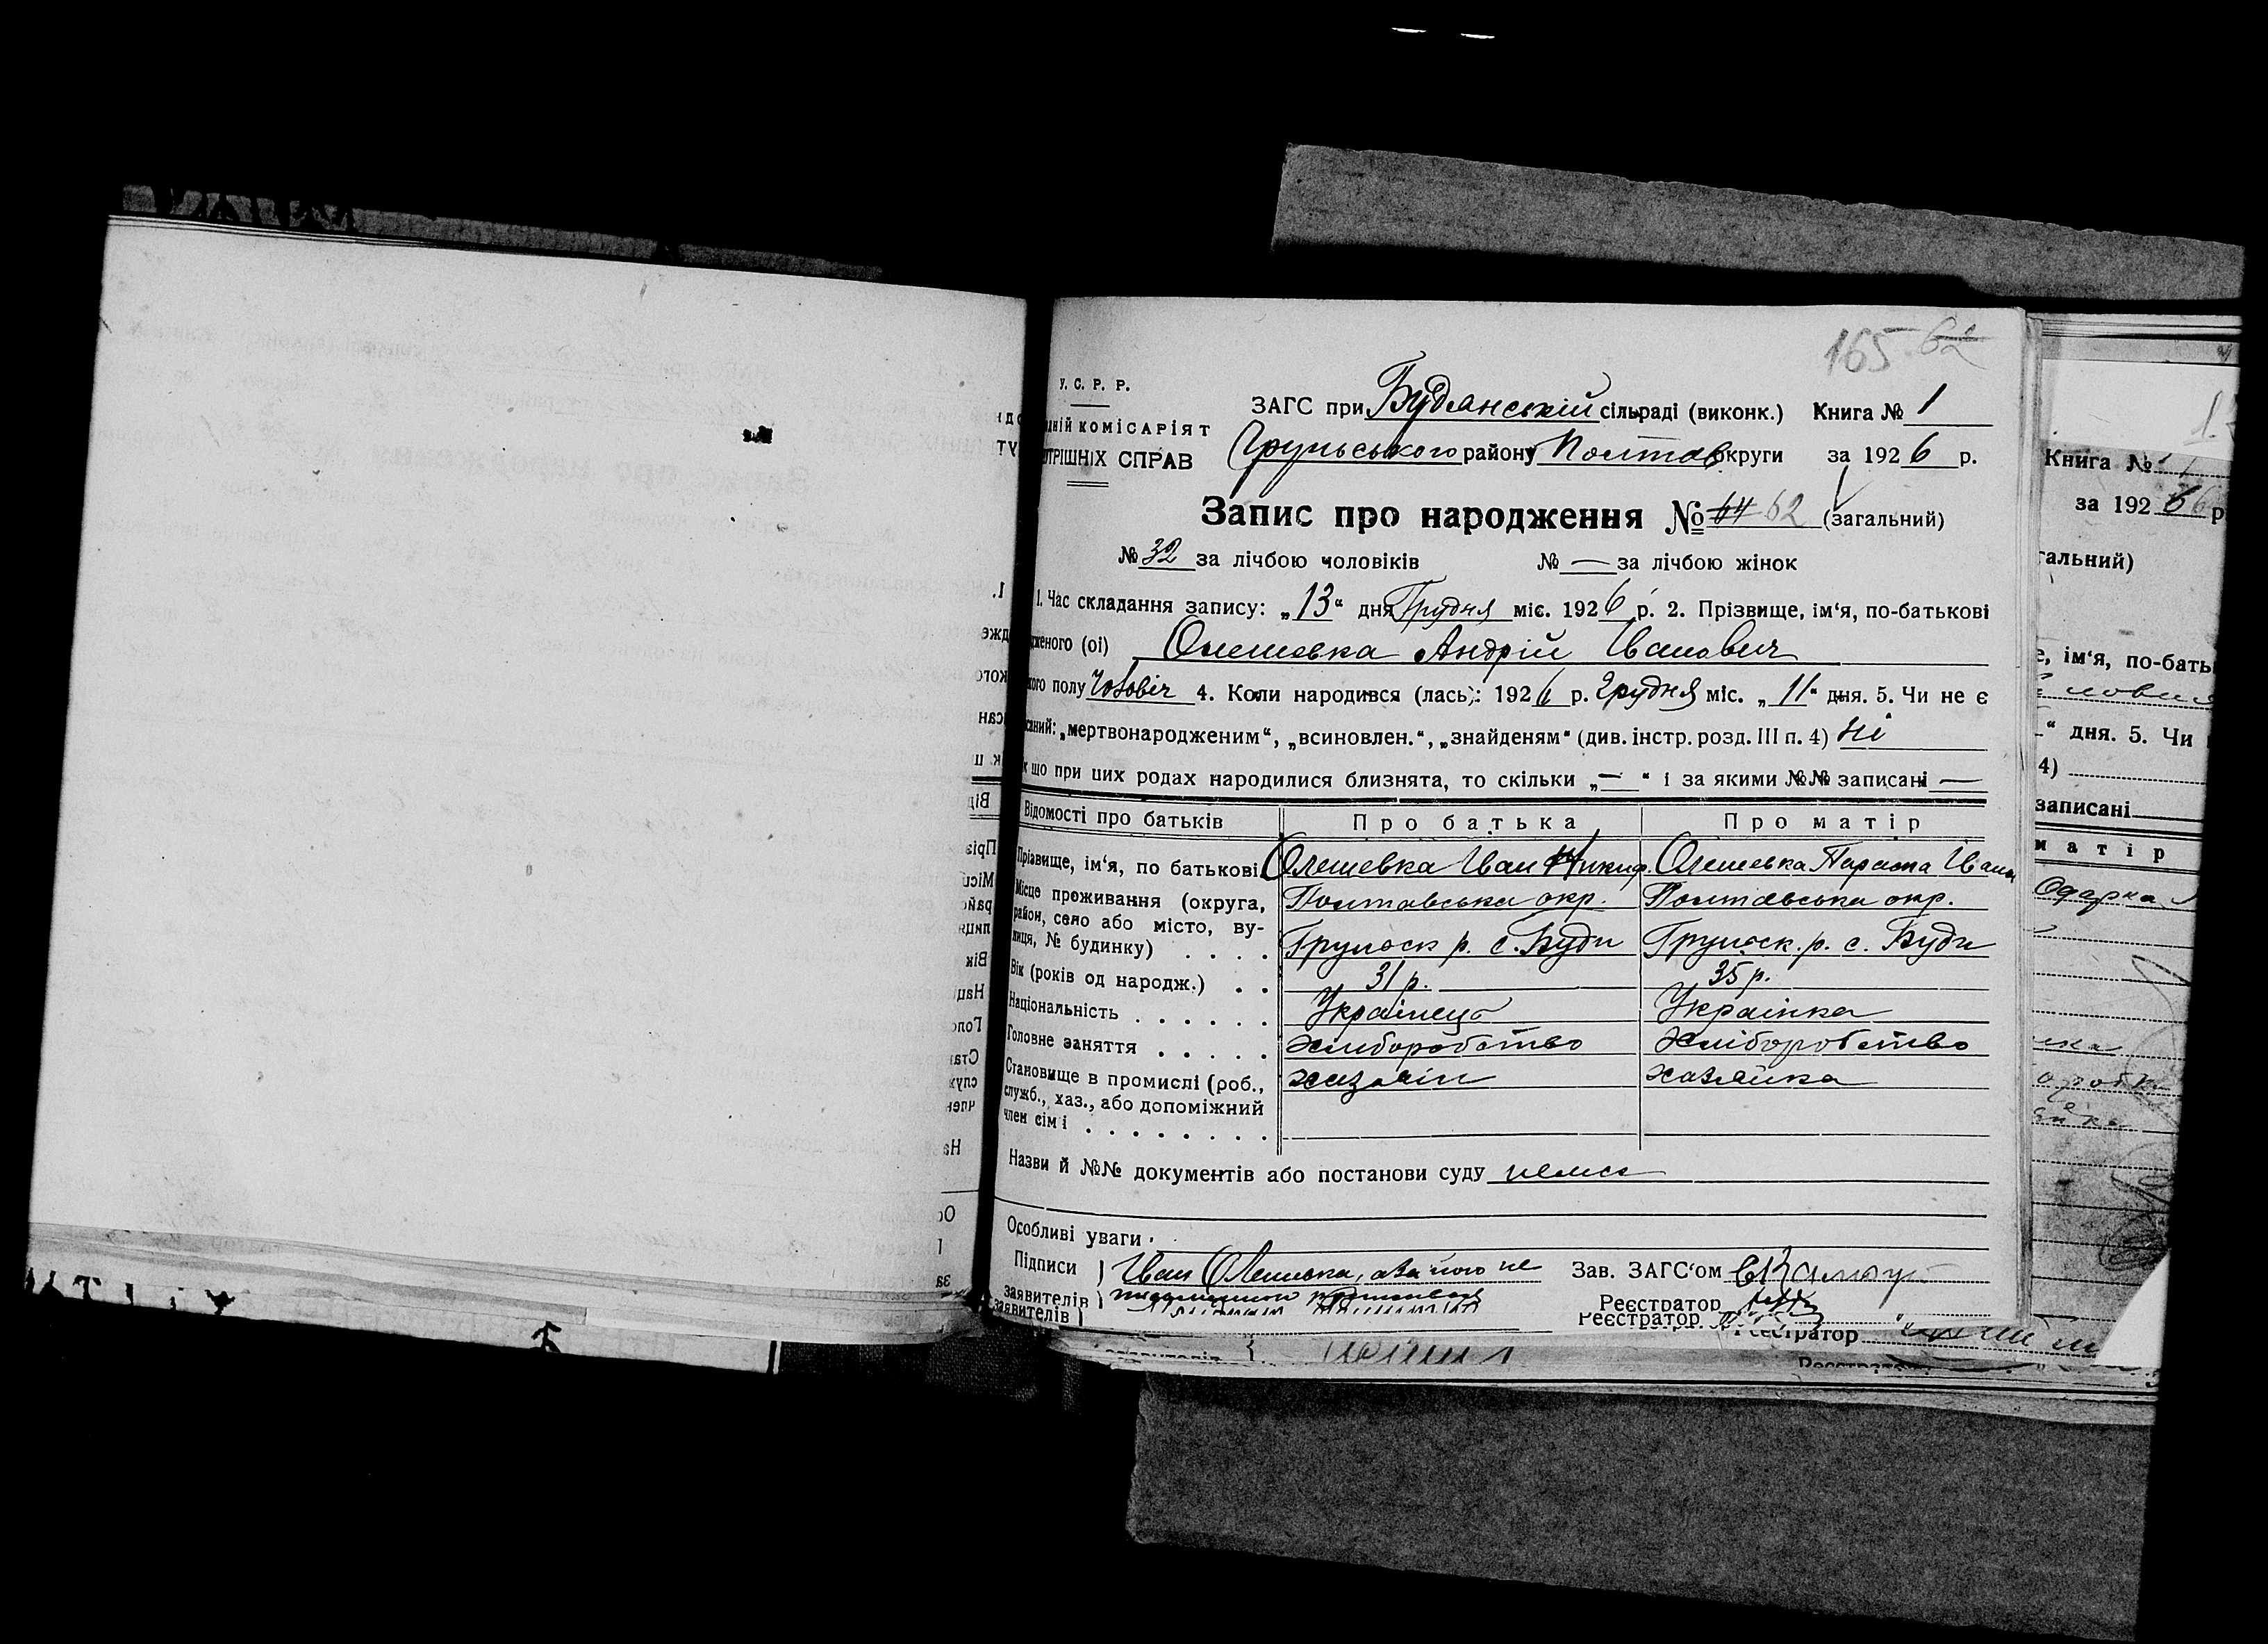 165 62
У. С. Р. Р.
ЗАГС при Будянській сільраді (виконк.) Книга № 1
дній КОМІСАРІЯТ
ТРІШНІХ СПРАВ
Грунського району Полтав округи за 1926 р.
Запис про народження № 64 62 (загальний)
№ 32 за лічбою чоловіків № — за лічбою жінок
1. Час складання запису: „13“ дня Грудня міс. 1926 р. 2. Прізвище, ім‘я, по-батькові
дженого (ої) Олешевка Андрій Іванович
кого полу чоловіч 4. Коли народився (лась): 1926 р. Грудня міс. „11“ дня. 5. Чи не є
саний: „мертвонародженим“, „всиновлен.“, „знайденям“ (див. інстр. розд. III п. 4) ні
к що при цих родах народилися близнята, то скільки „—“ і за якими №№ записані —
Відомості про батьків Про батька Про матір
Прізвище, ім‘я, по батькові. Олешевка Іван Никиф. Олешевка Параска Іван
Місце проживання (округа, Полтавська окр. Полтавська окр.
район, село або місто, ву-
лиця, № будинку) . . . . с. Буди р. с. Буди
Вік (років од народж.) . . 31 р. 35 р.
Національність . . . . . . Українець Українка
Головне заняття . . . . . хліборобство хліборобство
Становище в промислі (роб., хазяїн хазяйка
служб., хаз., або допоміжний
член сім і . . . . . . . .
Назви й №№ документів або постанови суду нема
Особливі уваги
Підписи Іван Олешевка, а за його не Зав. ЗАГС‘ом
заявителів Реєстратор
заявителів Реєстратор
Реєстратор
Книга №
за 1926 р
гальний)
е, ім‘я, по-бать
“ дня. 5. Чи
4)
записані
матір
Одарка